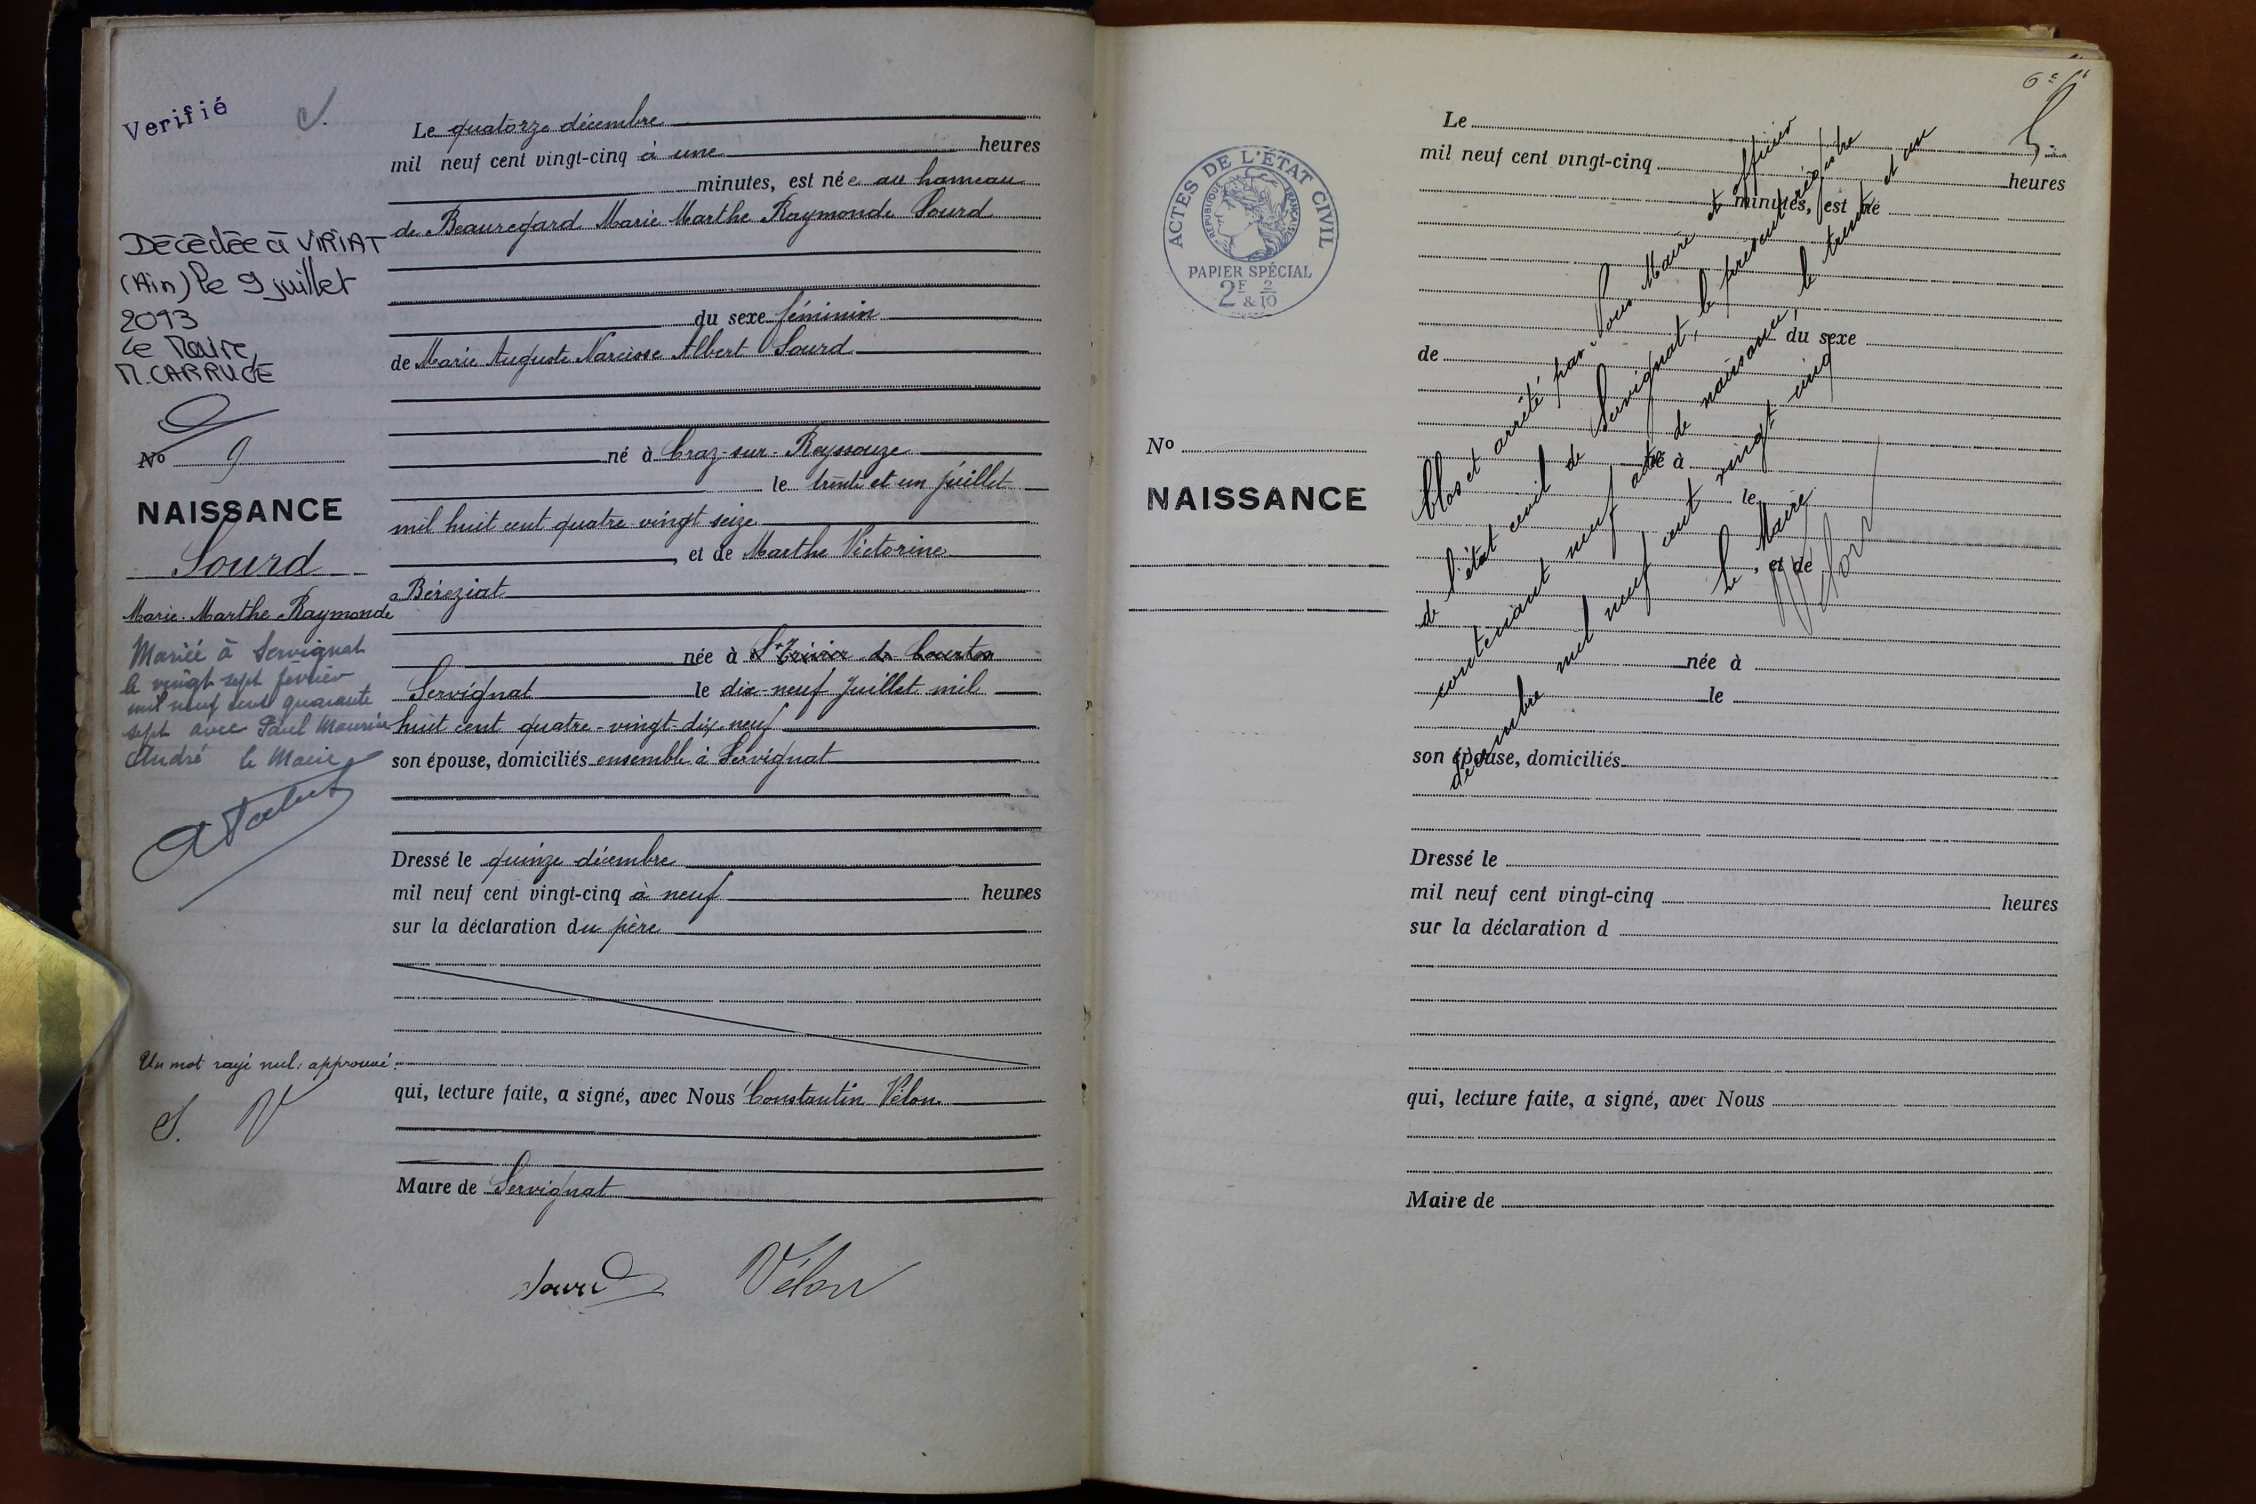 Verifié
Décédée à VIRIAT
(Ain) le 9 juillet
2013
Le Maire,
M. CARRUGE
No 9
NAISSANCE
Sourd
Marie Marthe Raymonde
Mariée à Servignat
le vingt sept février
mil neuf cent quarante
sept avec Paul Maurice
André le Maire
Un mot rayé nul: approuvé:
S. V
Le quatorze décembre
mil neuf cent vingt-cinq à une heures
minutes, est née au hameau
de Beauregard Marie Marthe Raymonde Sourd
du sexe féminin
de Marie Auguste Narcisse Albert Sourd
né à Craz-sur-Reyssouze
le trente et un juillet
mil huit cent quatre-vingt seize
, et de Marthe Victorine
Béréziat
née à St Trivier de Courtes
Servignat le dix-neuf juillet mil
huit cent quatre-vingt-dix-neuf
son épouse, domiciliés ensemble à Servignat
Dressé le quinze décembre
mil neuf cent vingt-cinq à neuf heures
sur la déclaration du père
qui, lecture faite, a signé, avec Nous Constantin Vélon
Maire de Servignat
Sourd Vélon
ACTES DE L'ÉTAT CIVIL
RÉPUBLIQUE FRANÇAISE
PAPIER SPÉCIAL
2F 2
& 10
No
NAISSANCE
Le
mil neuf cent vingt-cinq heures
minutes, est né
du sexe
de
né à
le
, et de
née à
le
son épouse, domiciliés
Dressé le
mil neuf cent vingt-cinq heures
sur la déclaration d
qui, lecture faite, a signé, avec Nous
Maire de
Clos et arrêté par Nous Maire et officier
de l'état civil de Servignat, le présent registre
contenant neuf actes de naissance, le trente et un
décembre mil neuf cent vingt cinq
Le Maire
Vélon